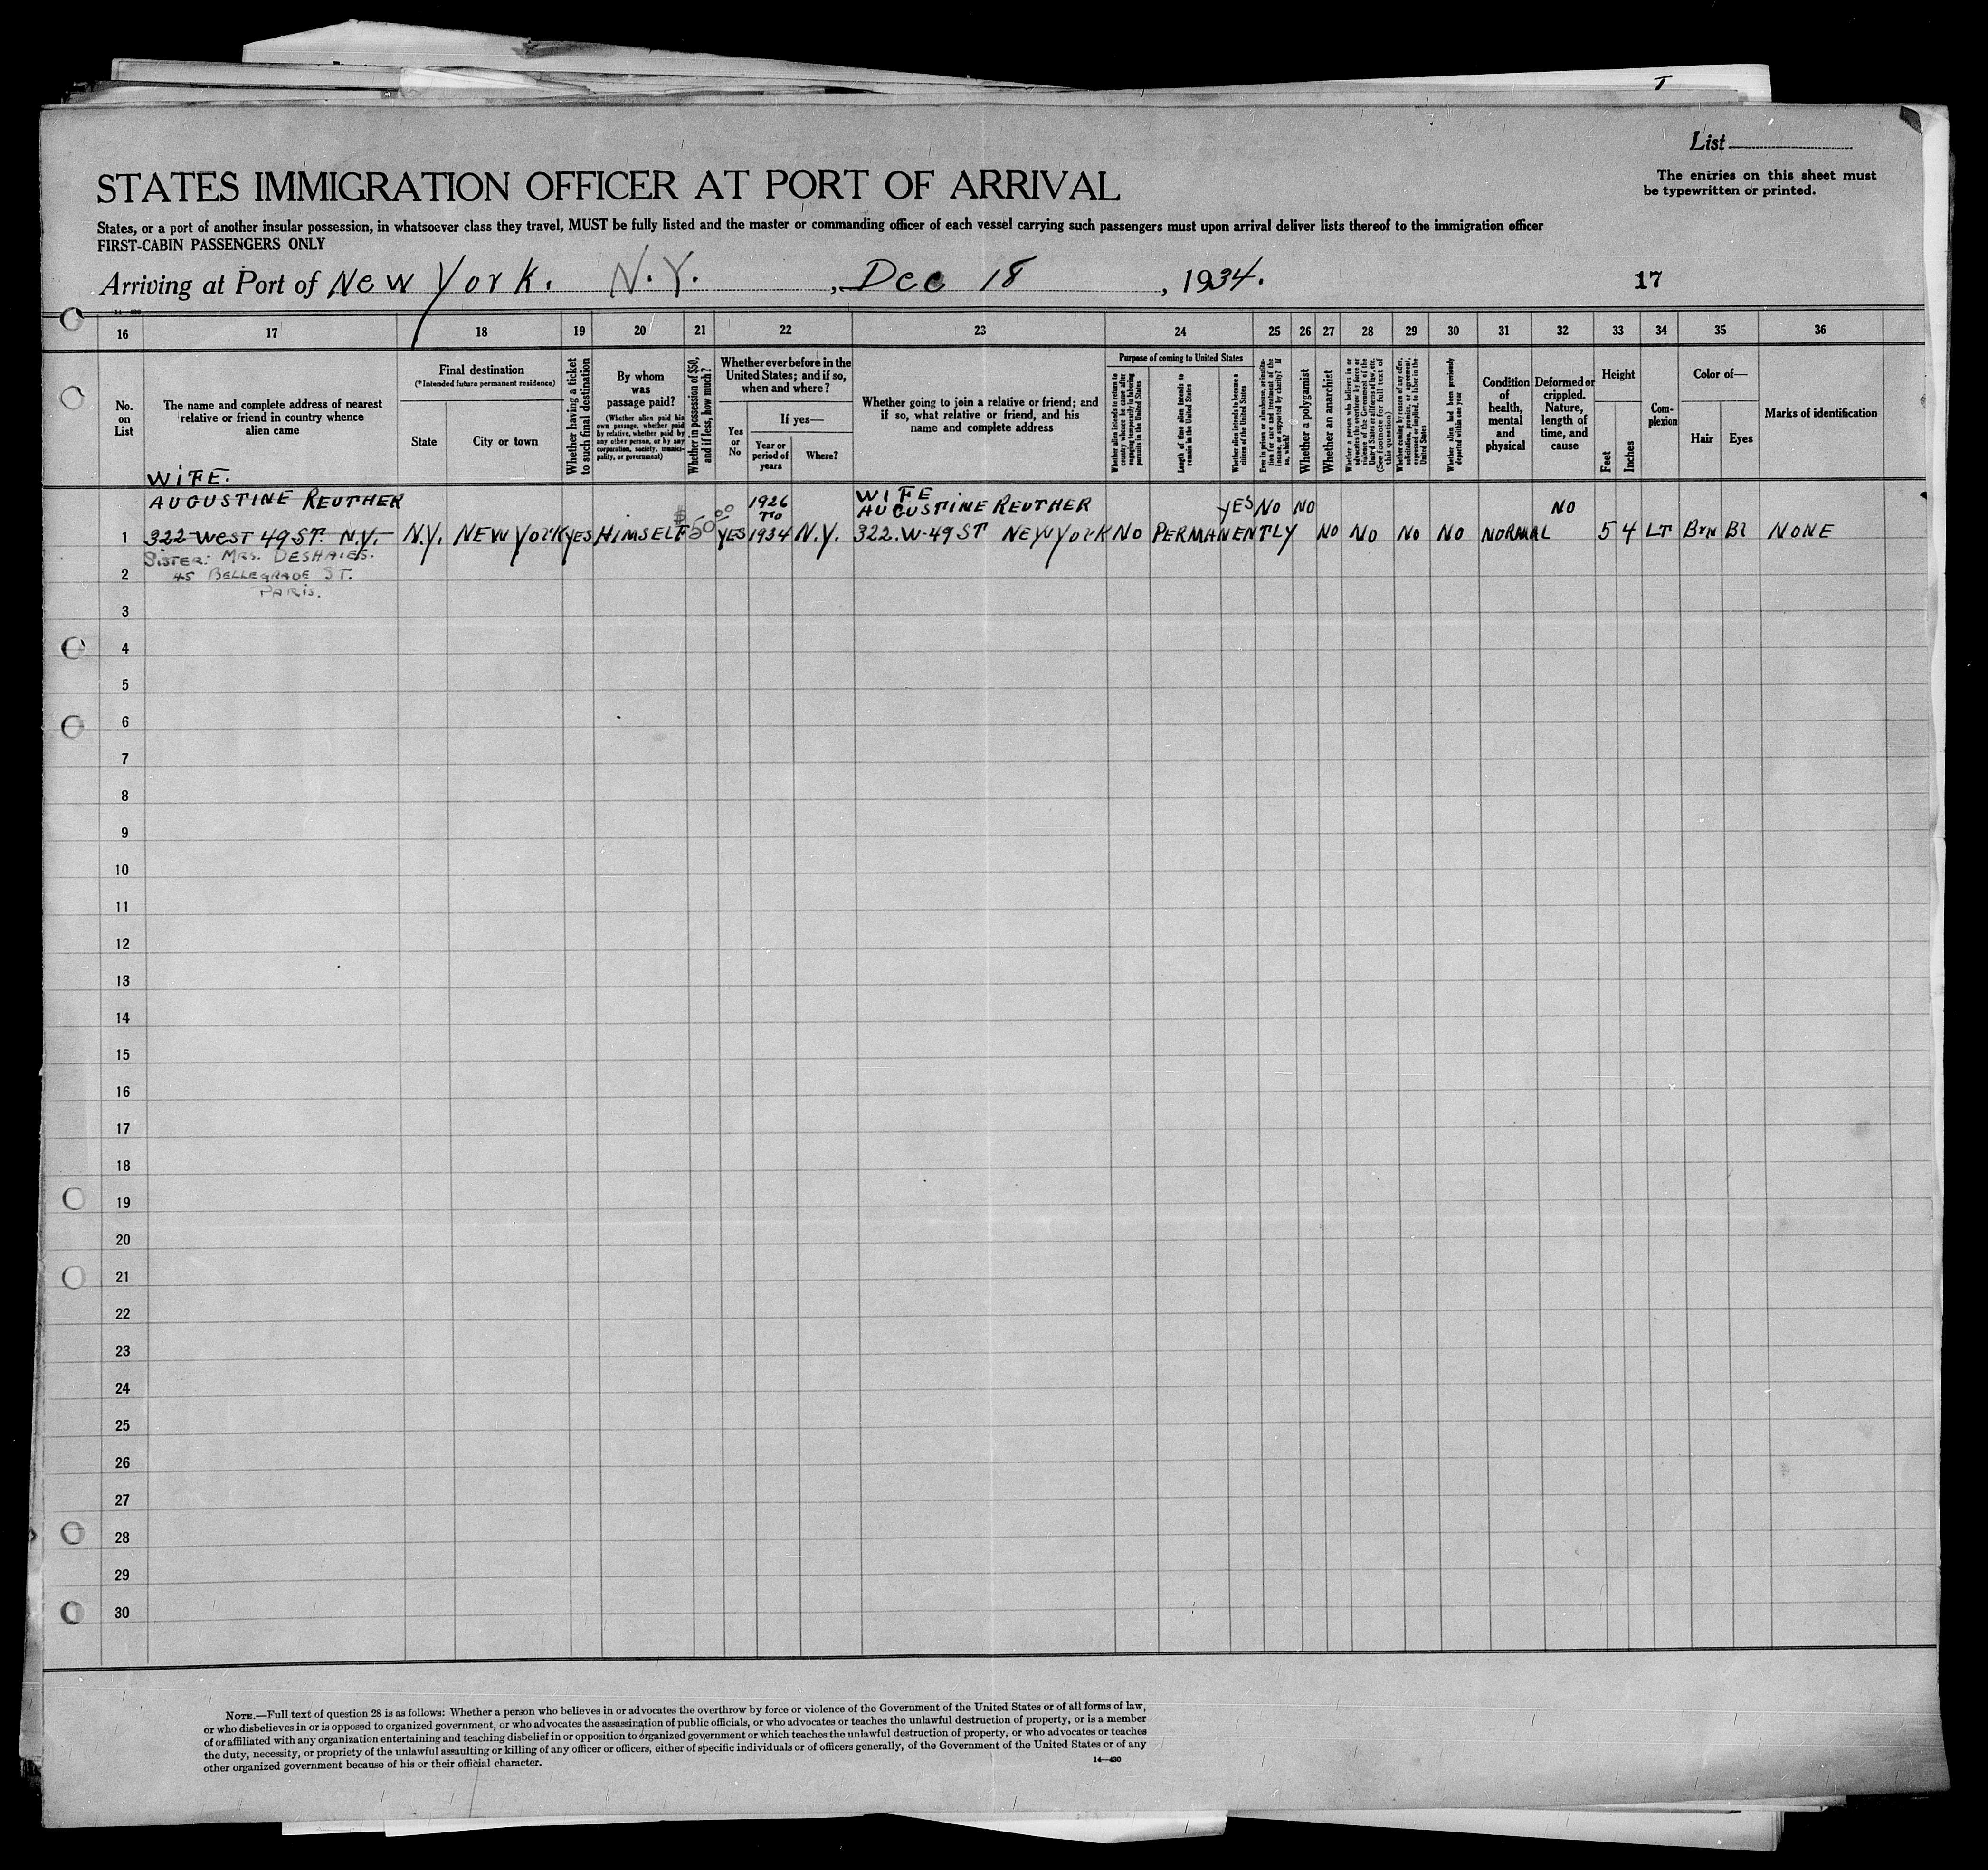 T
List
The entries on this sheet must
be typewritten or printed.
STATES IMMIGRATION OFFICER AT PORT OF ARRIVAL
States, or a port of another insular possession, in whatsoever class they travel, MUST be fully listed and the master or commanding officer of each vessel carrying such passengers must upon arrival deliver lists thereof to the immigration officer
FIRST-CABIN PASSENGERS ONLY
Arriving at Port of New York. N.Y. , Dec 18 , 1934. 17
14—430
16 17 18 19 20 21 22 23 24 25 26 27 28 29 30 31 32 33 34 35 36
No.
on
List
The name and complete address of nearest
relative or friend in country whence
alien came
Final destination
(*Intended future permanent residence)
State
City or town
Whether having a ticket
to such final destination
By whom
was
passage paid?
(Whether alien paid his
own passage, whether paid
by relative, whether paid by
any other person, or by any
corporation, society, munici-
pality, or government)
Whether in possession of $50,
and if less, how much?
Whether ever before in the
United States; and if so,
when and where?
Yes
or
No
If yes—
Year or
period of
years
Where?
Whether going to join a relative or friend; and
if so, what relative or friend, and his
name and complete address
Purpose of coming to United States
Whether alien intends to return to
country whence he came after
engaging temporarily in laboring
pursuits in the United States
Length of time alien intends to
remain in the United States
Whether alien intends to become a
citizen of the United States
Ever in prison or almshouse, or institu-
tion for care and treatment of the
insane, or supported by charity? If
so, which?
Whether a polygamist
Whether an anarchist
Whether a person who believes in or
advocates the overthrow by force or
violence of the Government of the
United States or all forms of law, etc.
(See footnote for full text of
this question)
Whether coming by reason of any offer,
solicitation, promise, or agreement,
expressed or implied, to labor in the
United States
Whether alien had been previously
deported within one year
Condition
of
health,
mental
and
physical
Deformed or
crippled.
Nature,
length of
time, and
cause
Height
Feet
Inches
Com-
plexion
Color of—
Hair
Eyes
Marks of identification
WIFE.
AUGUSTINE REUTHER 1926 WIFE
TO AUGUSTINE REUTHER YES NO NO NO
1 322 WEST 49 ST. N.Y. N.Y. NEW YORK YES HIMSELF $50.00 YES 1934 N.Y. 322.W-49 ST NEW YORK NO PERMANENTLY NO NO NO NO NORMAL 5 4 LT Brn Bl NONE
SISTER: MRS. DESHAIES.
2 45 BELLEGRADE ST.
PARIS.
3
4
5
6
7
8
9
10
11
12
13
14
15
16
17
18
19
20
21
22
23
24
25
26
27
28
29
30
NOTE.—Full text of question 28 is as follows: Whether a person who believes in or advocates the overthrow by force or violence of the Government of the United States or of all forms of law,
or who disbelieves in or is opposed to organized government, or who advocates the assassination of public officials, or who advocates or teaches the unlawful destruction of property, or is a member
of or affiliated with any organization entertaining and teaching disbelief in or opposition to organized government or which teaches the unlawful destruction of property, or who advocates or teaches
the duty, necessity, or propriety of the unlawful assaulting or killing of any officer or officers, either of specific individuals or of officers generally, of the Government of the United States or of any
other organized government because of his or their official character.
14—430